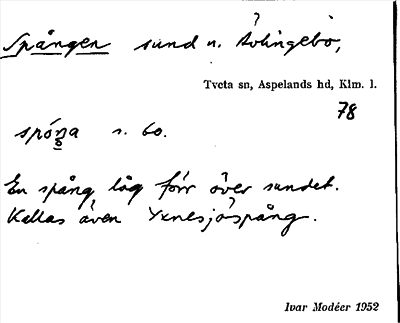 Spången sund n. Åvlingebo,
Tveta sn, Aspelands hd, Klm. l.
78
s. 60.
En spång låg förr över sundet.
Kallas även Yxnesjöspång.
Ivar Modéer 1952